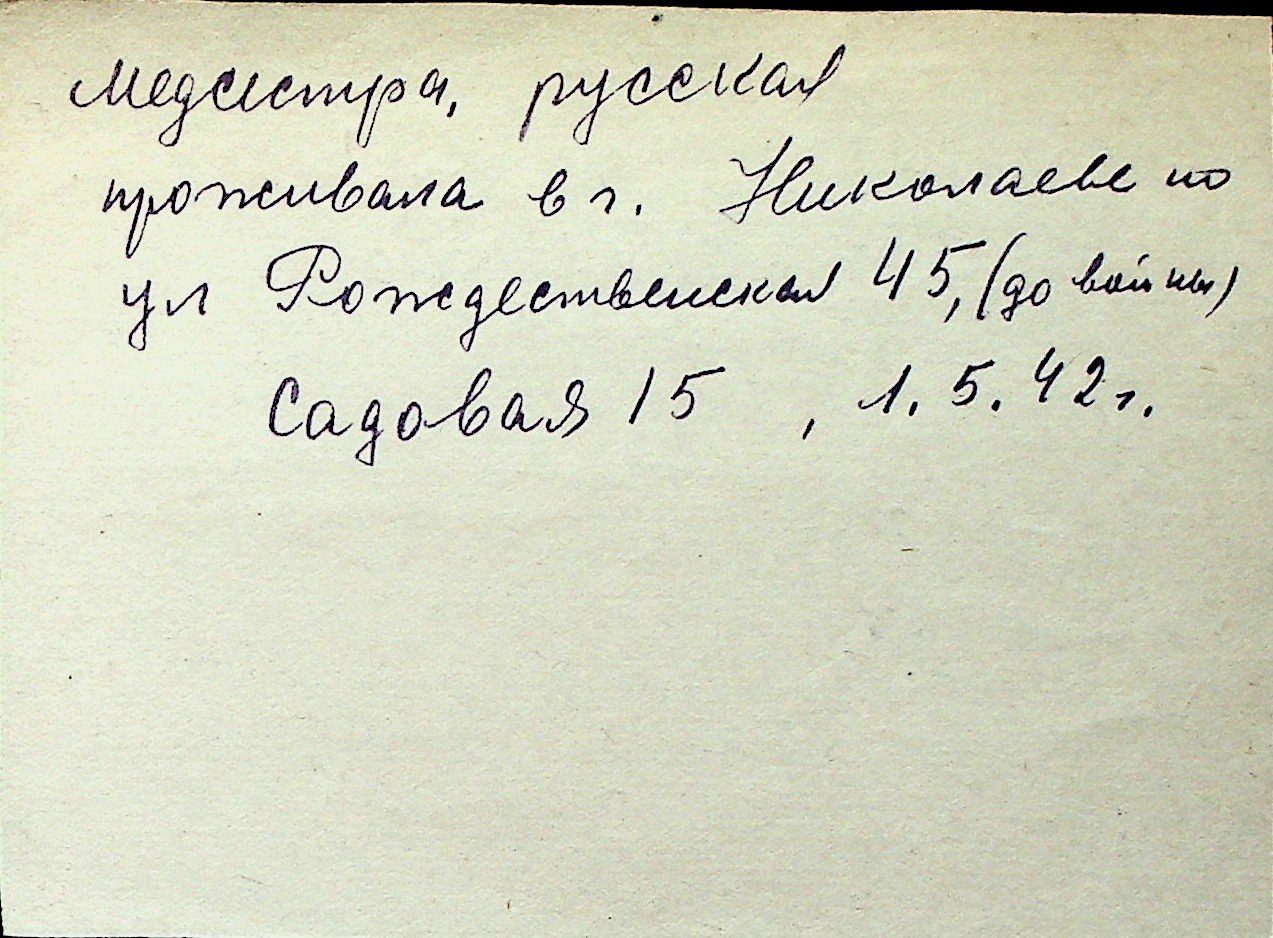 Медсестра, русская
проживала в г. Николаеве по
ул Рождественская 45, (до войны)
Садовая 15 , 1.5.42 г.